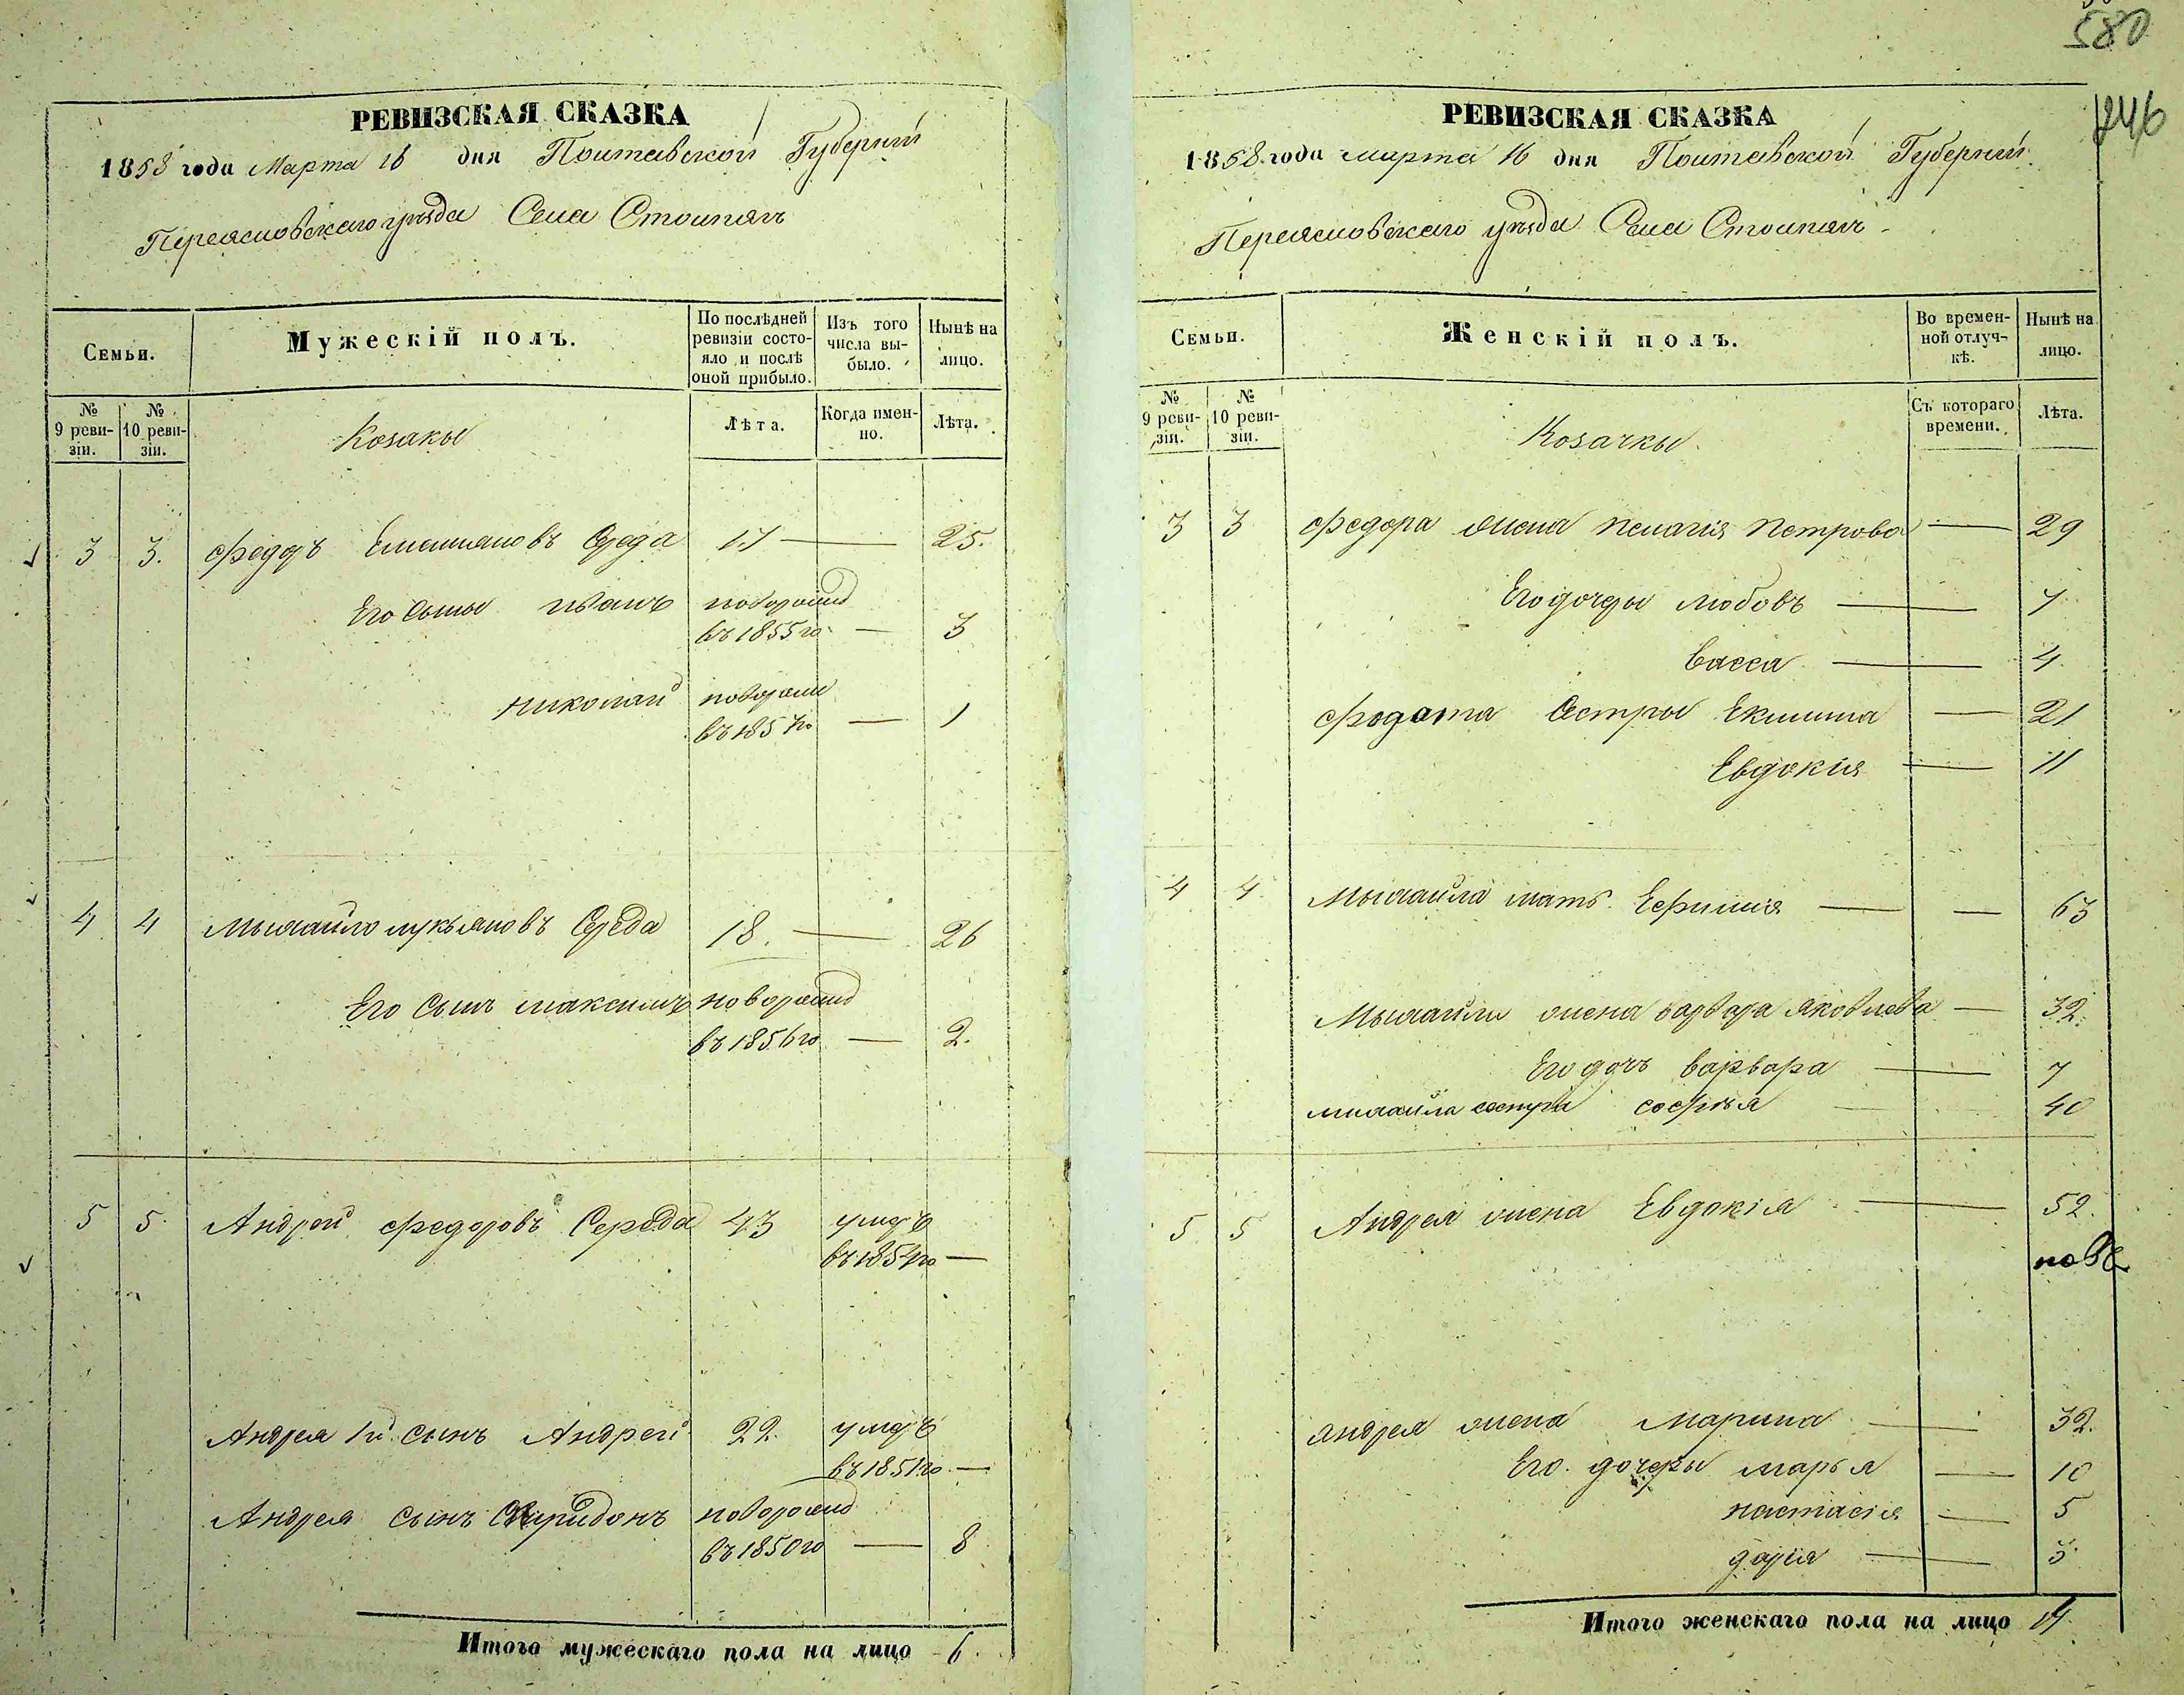 РЕВИЗСКАЯ СКАЗКА
1858 года Марта 16 дня Полтавской Губернии
Переясловского уезда Села Стопягъ
Семьи.
Мужескій полъ.
По послѣдней ревизіи состояло и послѣ оной прибыло.
Изъ того числа выбыло.
Нынѣ на лицо.
№ 9 ревизіи.
№ 10 ревизіи.
Козакы
Лѣта.
Когда именно.
Лѣта.
3 3. Федоръ Емельяновъ Середа 17 — 25.
Его сыны Иванъ новорожд
въ 1855 го — 3
Николай новорожд
въ 1857 го — 1
4 4 Мыхайло Лукьяновъ Середа 18. — 26
Его сынъ Максимъ новорожд
въ 1856 го — 2.
5 5. Андрей Федоровъ Середа 43 умеръ
въ 1854 го —
Андрея 1й сынъ Андрей 22. умеръ
въ 1851 го —
Андрея сынъ Спиридонъ новорожд
въ 1850 го — 8
Итого мужескаго пола на лицо 6.
580
РЕВИЗСКАЯ СКАЗКА
1858 года марта 16 дня Полтавской Губернии
Переясловского уезда Села Стопягъ
Семьи.
Женскій полъ.
Во временной отлучкѣ.
Нынѣ на лицо.
№ 9 ревизіи.
№ 10 ревизіи.
Козачкы
Съ котораго времени.
Лѣта.
3 3 Федора жена Пелагія Петрова — 29
Его дочеры Любовъ — 7
Васса — 4
Федота сестры Екилина — 21
Евдокия — 11
4 4 Мыхайла мать Ефимия — — 63
Мыхайлы жена Варвара Яковлева — 32.
Его дочъ Варвара — 7
михайла сестра Софія — 40
5 5 Андрея жена Евдокія — 52.
Андрея жена Марина — 32.
Его дочеры Марья — 10
Настасія — 5
Дарія — 3
Итого женскаго пола на лицо 14